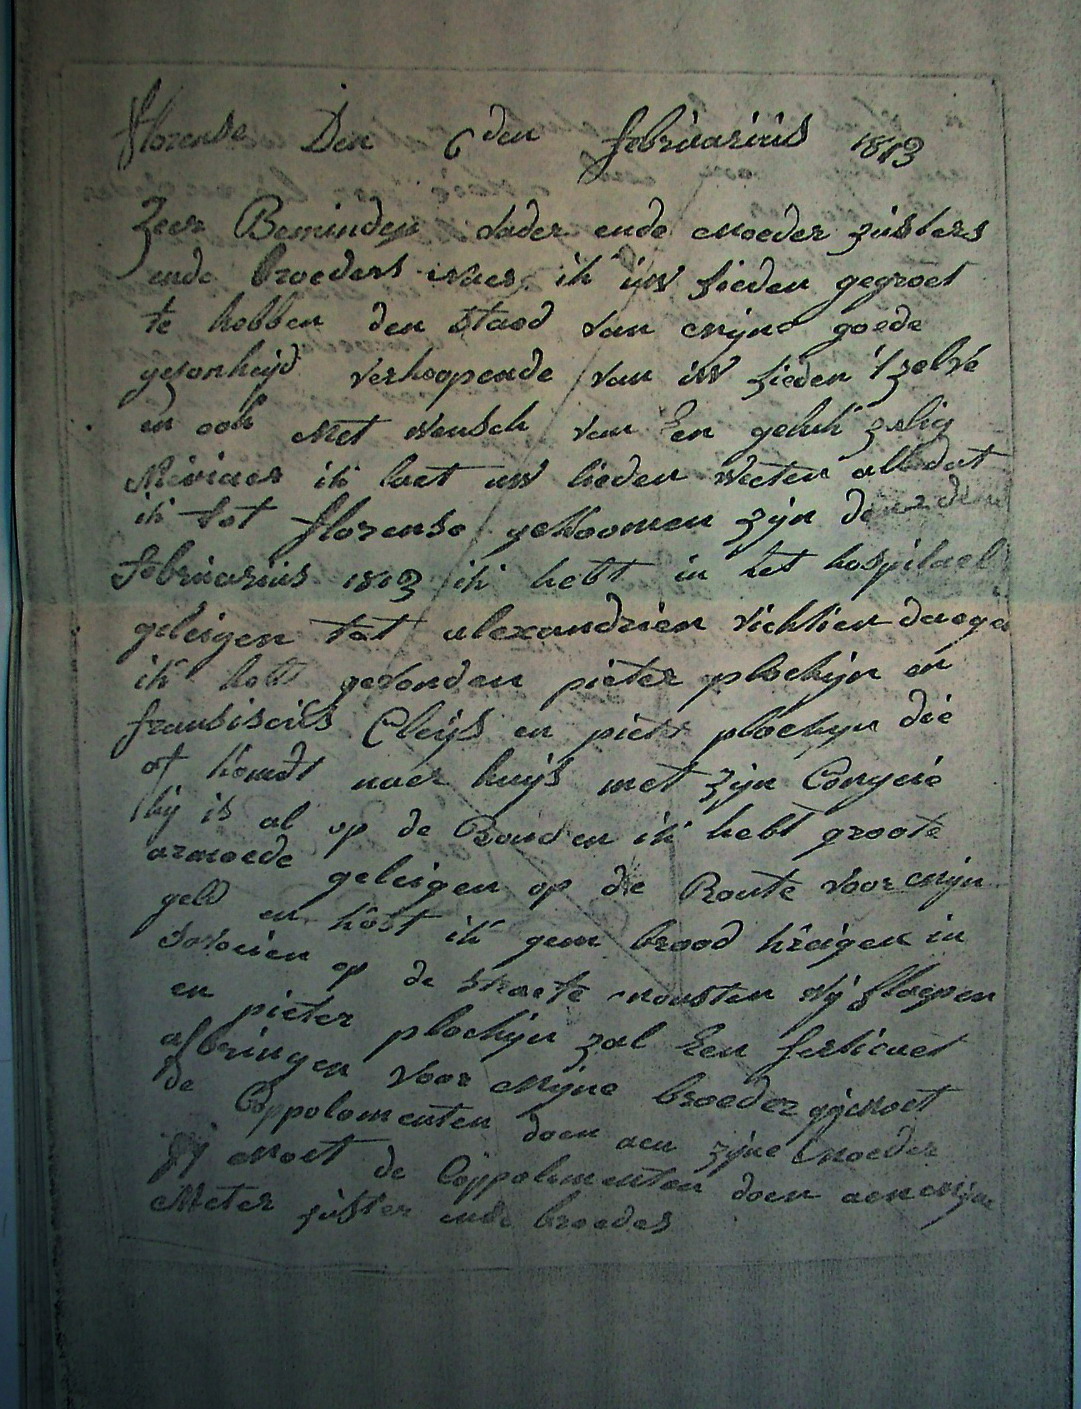 florense Den 6 den februariüs 1813
Zeer Beminden vader ende moeder züsters
ende broeders naer ik üw lieden gegroet
te hebben den staed van mijne goede
gesonheijd verhoopende van üw lieden 't zelve
en ook met wensch van Een geluk zelig
Niviaer ik laet uw lieden weeten alledat
ik tot florense gekoomen zijn den 2 den
Febriariüs 1813 ik hebt in het hospitael
geleigen tot alexandrien vichtien daegen
ik hebt gevonden pieter plockijn en
fransiscüs Cleijs en pieter plockijn die
of komdt naer huijs met zijn Congeié
hij is al op de Bonden ik hebt groote
armoede geleigen op die Route voor mijn
geld en kost ik geen brood kreigen in
Savoien op de straete mousten wij slaepen
en pieter plockijn zal Een sertiecaet
afbringen voor mijne broeder gij moet
de Coppolementen doen aen zijne moeder
gij moet de Coppolementen doen aen mijne
Meter süster ende broeders